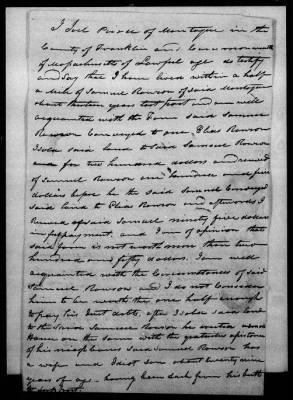 I Joel Pierce of Montague in the
County of Franklin and Commonwealth
of Massachusetts of Lawful age do testify
and say that I have lived within a half
a Mile of Samuel Rowson of said Montague
about thirteen years last past and am well
acquainted with the Farm said Samuel
Rowson Conveyed to one Elias Rowson
I sold said land to said Samuel Rowson
for two hundred dollars and received
of Samuel Rowson one hundred and five
dollars before he the said Samuel Conveyed
said land to Elias Rowson and afterwards I
Received of said Samuel ninety five dollars
in full payment, and I am of opinion that
said farm is not worth more than two
hundred and fifty dollars. I am well
acquainted with the Circumstances of said
Samuel Rowson and I do not Consider
him to be worth the one half enough
to pay his just debts, after I sold said land
to the said Samuel Rowson he erected a small
House on the same with the gratuitous assistance
of his neighbours said Samuel Rowson has
a wife and Idiot son about twenty nine
years of age - having been such from his birth